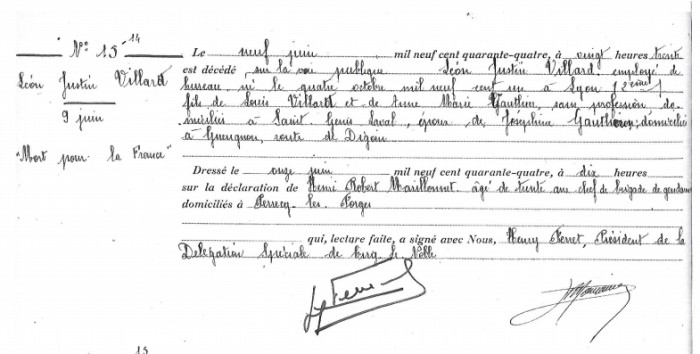 N° 15
14
Léon Justin Villard
9 juin
"Mort pour la France"
Le neuf juin mil neuf cent quarante-quatre, à vingt heures trente
est décédé, sur la voie publique Léon Justin Villard employé de
bureau, né le quatre octobre mil neuf cent un à Lyon (2ème)
fils de Louis Villard et de Anne Marie Gauthier, sans profession do-
miciliés à Saint Genis Laval, époux de Joséphine ; domicilié
à Gueugnon, route de Digoin
Dressé le onze juin mil neuf cent quarante-quatre, à dix heures
sur la déclaration de Henri Robert âgé de trente ans chef de brigade de gendarm
domiciliés à Perrecy les Forges
qui, lecture faite, a signé avec Nous, Henry Perret, Président de la
Délégation Spéciale de
15